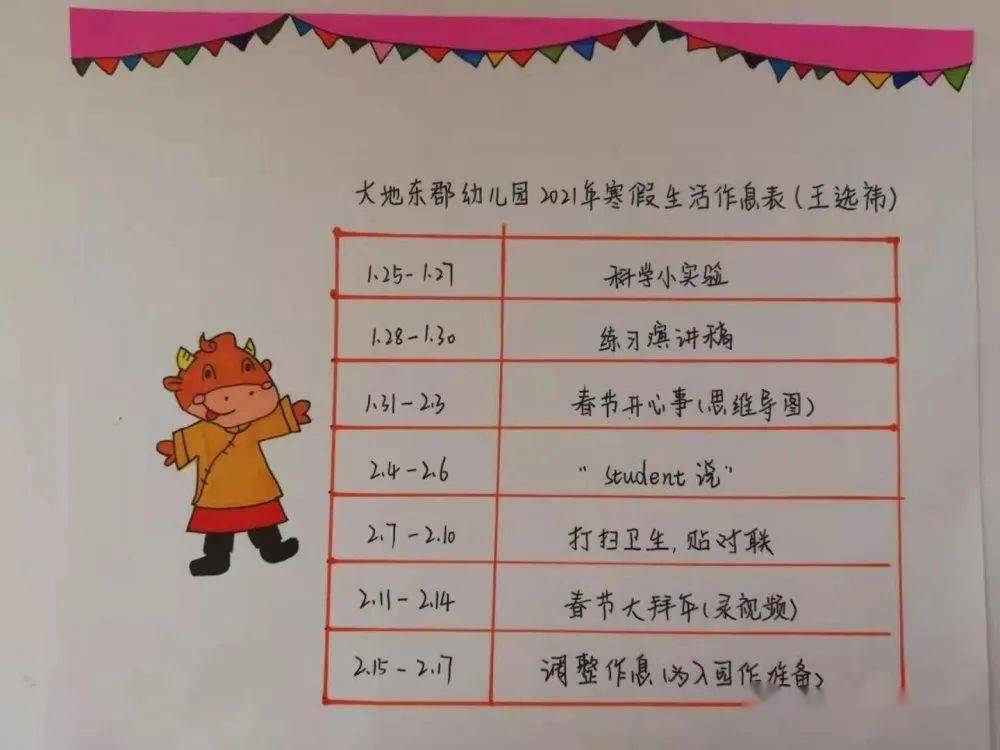 大地东郡幼儿园2021年寒假生活作息表(王选祎)
1.25-1.27 科学小实验
1.28-1.30 练习演讲稿
1.31-2.3 春节开心事(思维导图)
2.4-2.6 "student说"
2.7-2.10 打扫卫生,贴对联
2.11-2.14 春节大拜年(录视频)
2.15-2.17 调整作息(为入园作准备)